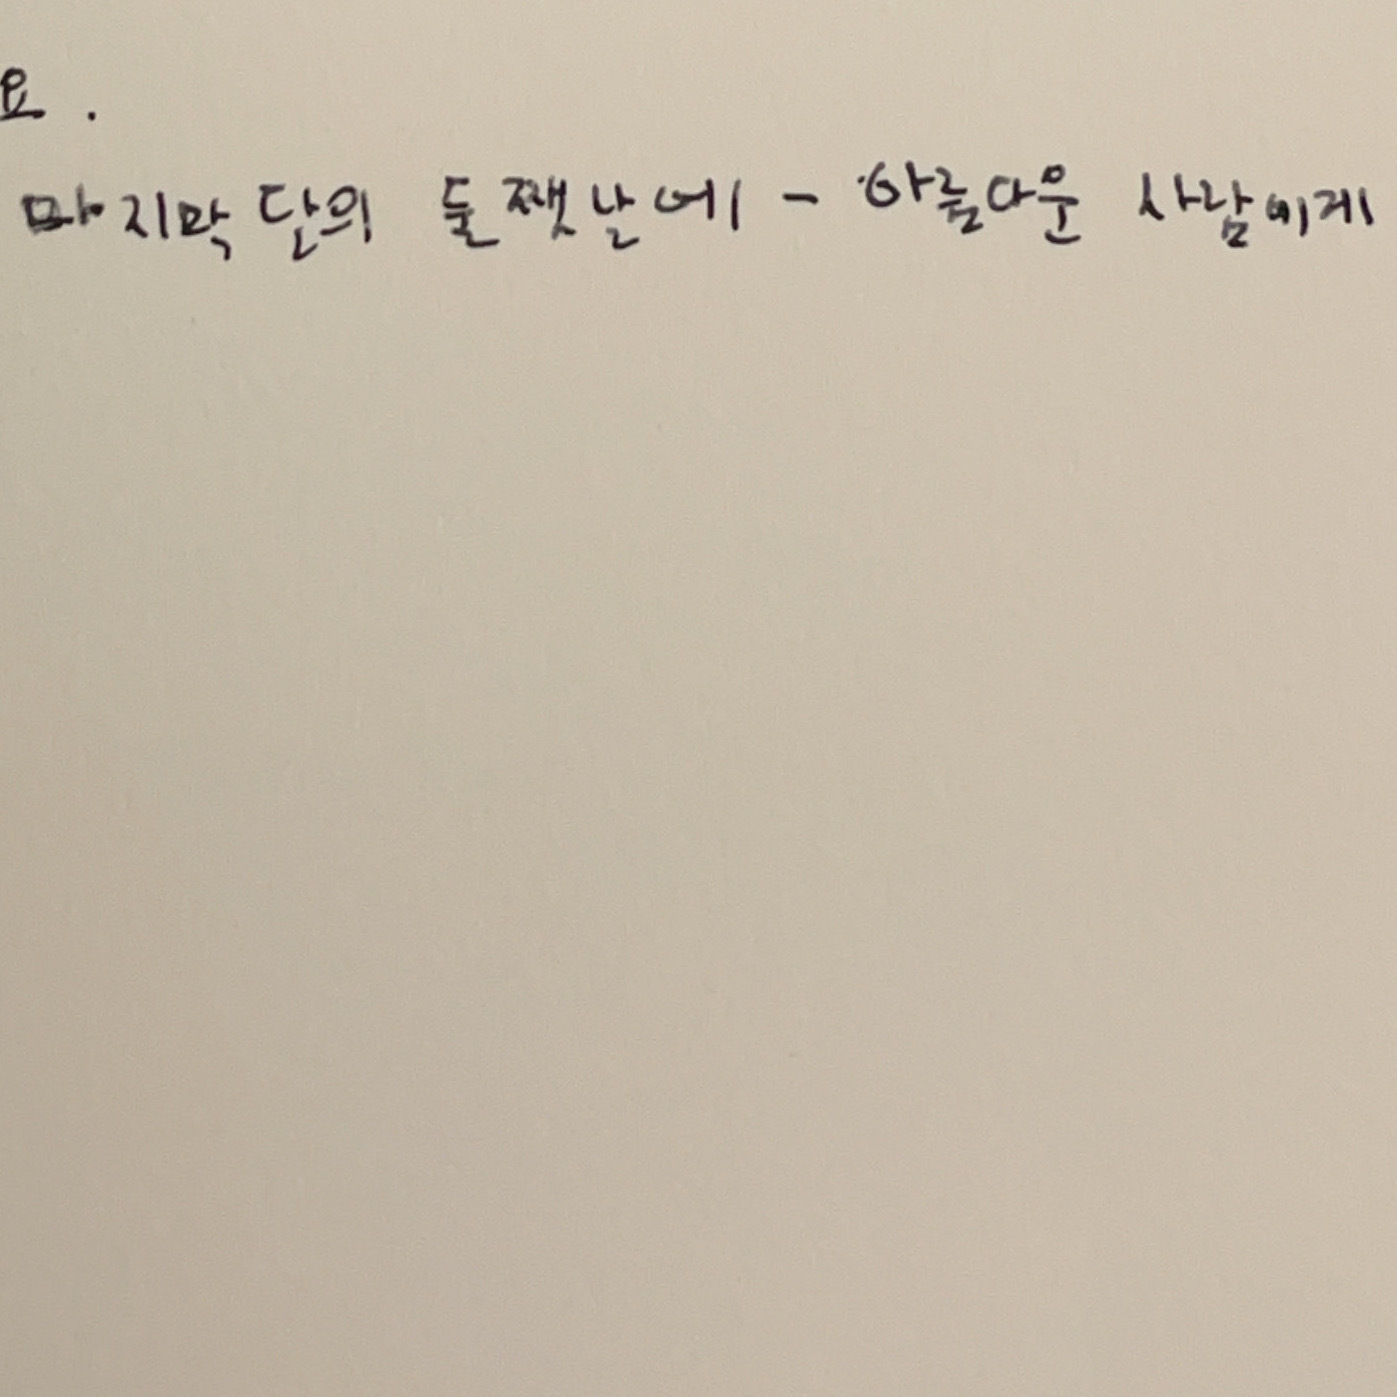 요.
마지막 달의 둘쨋날에 - 아름다운 사람에게